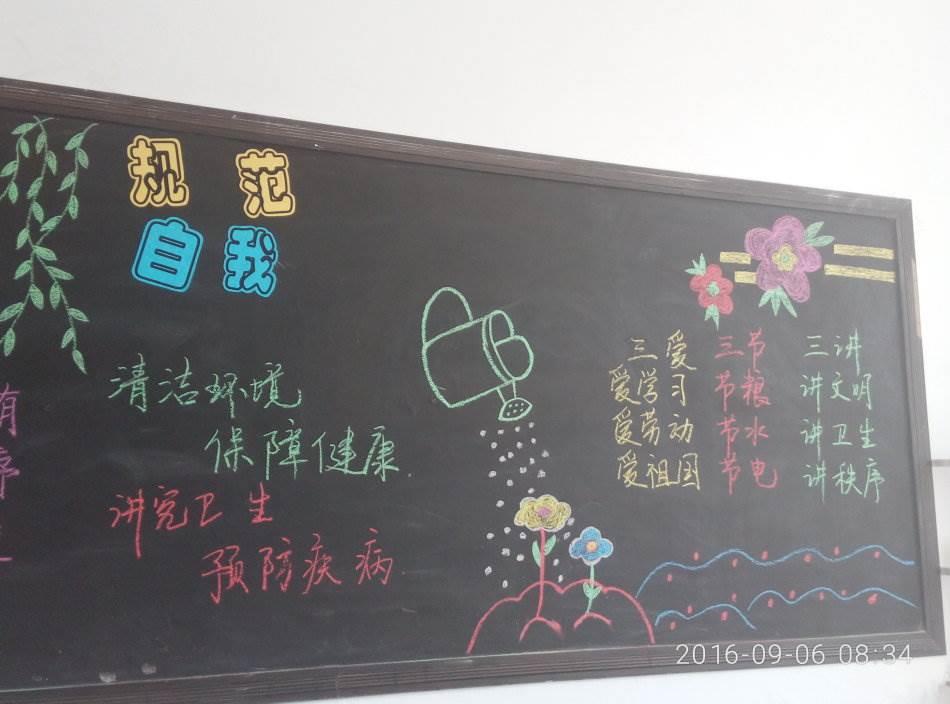 规范
自我
清洁环境
保障健康
讲究卫生
预防疾病
三爱
爱学习
爱劳动
爱祖国
三节
节粮
节水
节电
三讲
讲文明
讲卫生
讲秩序
2016-09-06 08:34